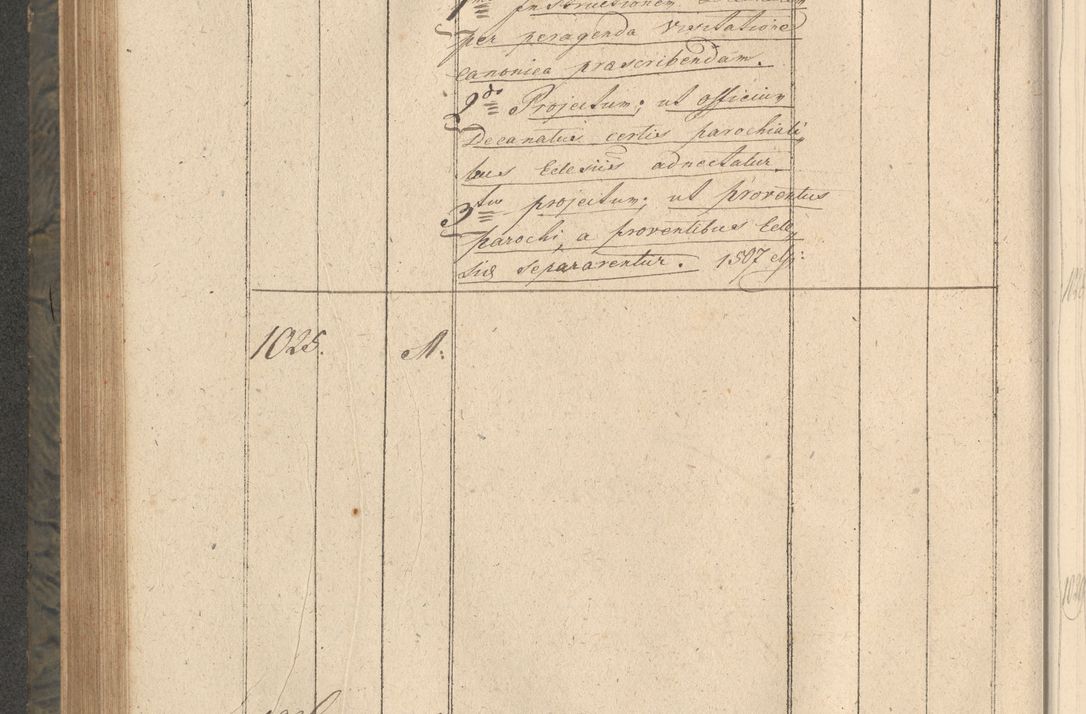 1mo Instructionem
per peragenda Visitatione
canonica præscribendam.
2do Projectum; ut officium
Decanatus certis parochiali,
bus Eclesiis adnectatur.
3tio projectum; ut proventus
parochi, a proventibus Ecle,
siæ separarentur. 1587
1025. M: